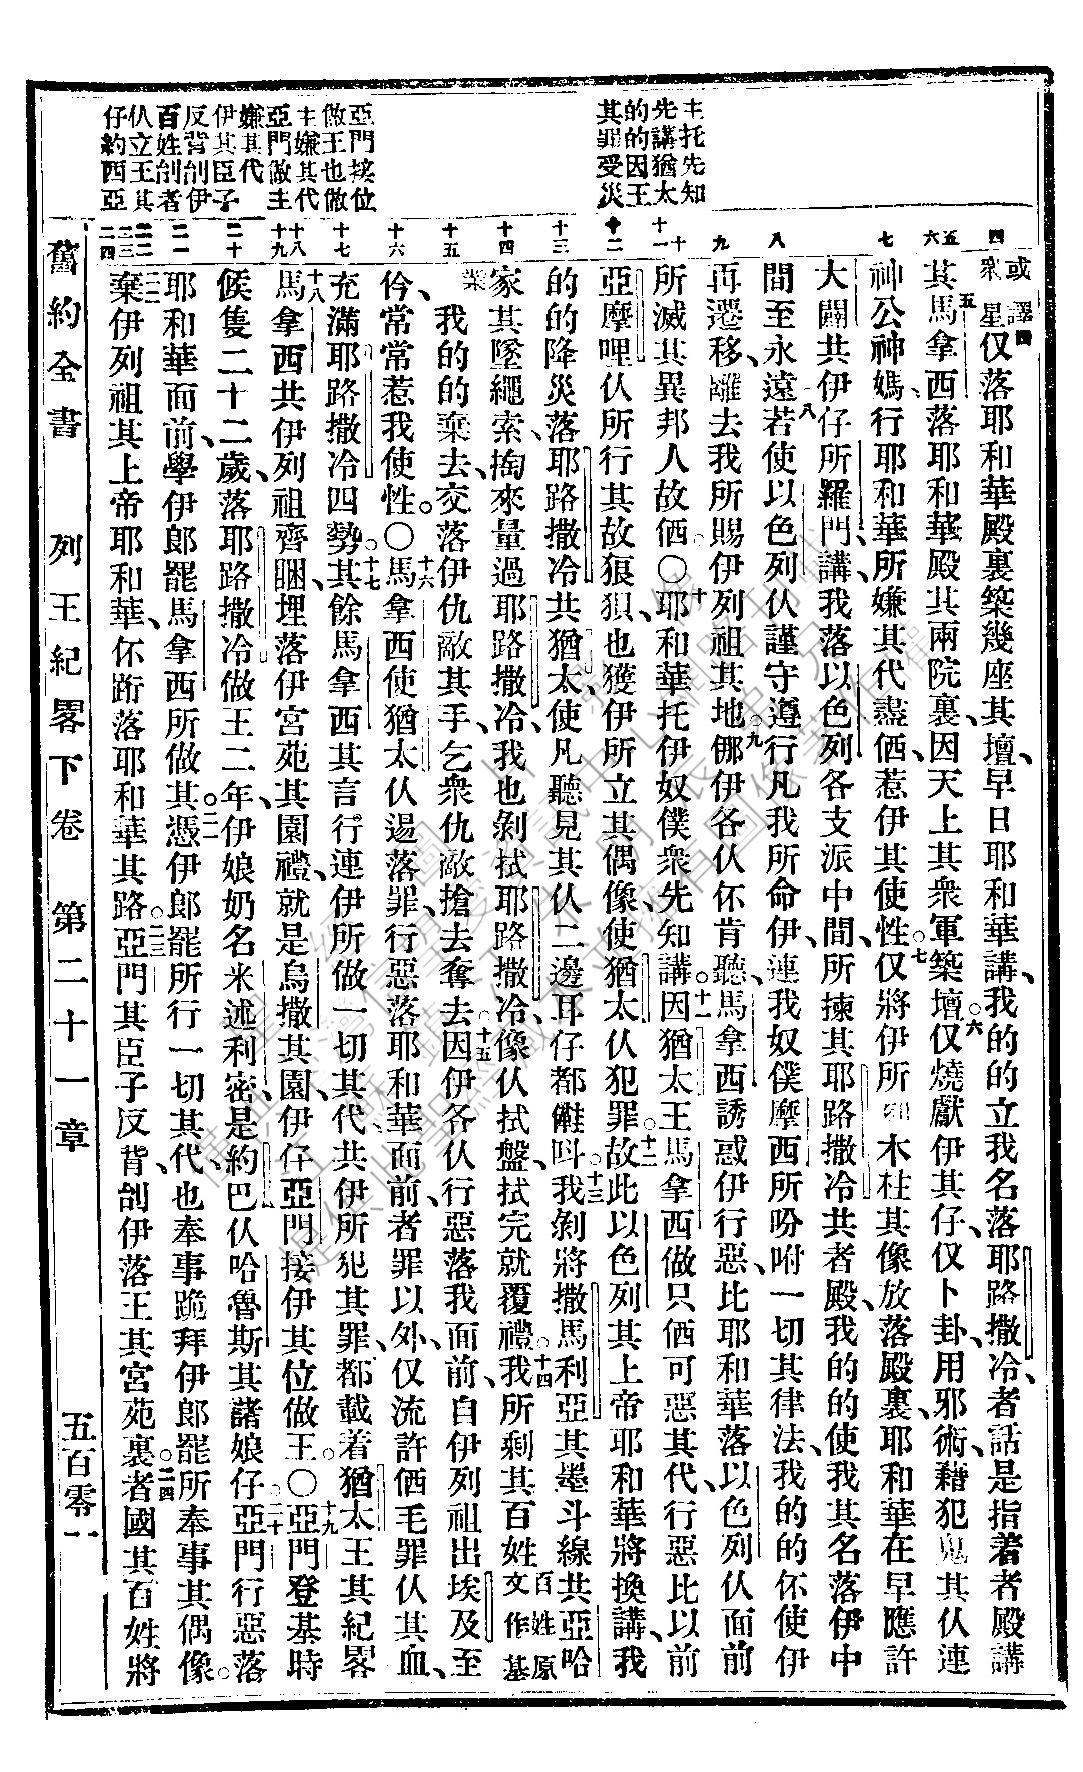 主托先知
先講猶太
的的因王
其罪受災
亞門接位
做王也做
主嫌其代
亞門做主
嫌其代
伊其臣子
反背刣伊
百姓刣者
仈立王其
仔約西亞
四
五
六
七
八
九
十
十一
十二
十三
十四
十五
十六
十七
十八
十九
二十
二一
二二
二三
二四
或譯衆星四仅落耶和華殿裏築幾座其壇、早日耶和華講、我的的立我名落耶路撒冷、者話是指着者殿講
五其馬拿西落耶和華殿其兩院裏、因天上其衆軍築壇。六仅燒獻伊其仔、仅卜卦、用邪術、藉犯鬼其仈連
神公神媽行耶和華所嫌其代盡𠊎惹伊其使性。七仅將伊所 木柱其像放落殿裏、耶和華在早應許
大闢共伊仔所羅門講、我落以色列各支派中間、所揀其耶路撒冷共者殿、我的的使我其名落伊中
間至永遠、八若使以色列仈謹守遵行凡我所命伊、連我奴僕摩西所吩咐一切其律法、我的的伓使伊
再遷移、離去我所賜伊列祖其地。九倻伊各仈伓肯聽、馬拿西誘惑伊行惡、比耶和華落以色列仈面前
所滅其異邦人故𠊎。〇十耶和華托伊奴僕衆先知講。十一因猶太王馬拿西做只𠊎可惡其代、行惡比以前
亞摩哩仈所行其故狠狽、也獲伊所立其偶像、使猶太仈犯罪。十二故此以色列其上帝耶和華將換講、我
的的降災落耶路撒冷共猶太、使凡聽見其仈二邊耳仔都𩨗呌。十三我剝將撒馬利亞其墨斗線共亞哈
家其墜繩索、掏來量過耶路撒冷、我也剝拭耶路撒冷、像仈拭盤、拭完就覆禮。十四我所剩其百姓百姓原文作基
業、我的的棄去、交落伊仇敵其手、乞衆仇敵搶去奪去、十五因伊各仈行惡落我面前、自伊列祖出埃及至
伶、常常惹我使性。〇十六馬拿西使猶太仈逿落罪、行惡落耶和華面前、者罪以外、仅流許𠊎毛罪仈其血、
充滿耶路撒冷四勢。十七其餘馬拿西其言行、連伊所做一切其代、共伊所犯其罪、都載着猶太王其紀畧
十八馬拿西共伊列祖齊𥄫、埋落伊宮苑其園禮、就是烏撒其園、伊仔亞門接伊其位做王。〇十九亞門登基時
候、隻二十二歲、落耶路撒冷做王二年、伊娘奶名米述利密、是約巴仈哈魯斯其諸娘仔。二十亞門行惡落
耶和華面前、學伊郎罷馬拿西所做其。二一憑伊郎罷所行一切其代、也奉事跪拜伊郎罷所奉事其偶像。
二二棄伊列祖其上帝耶和華、伓跴落耶和華其路。二三亞門其臣子反背、刣伊落王其宮苑裏。二四者國其百姓將
舊約全書　列王紀畧下卷　第二十一章　五百零一